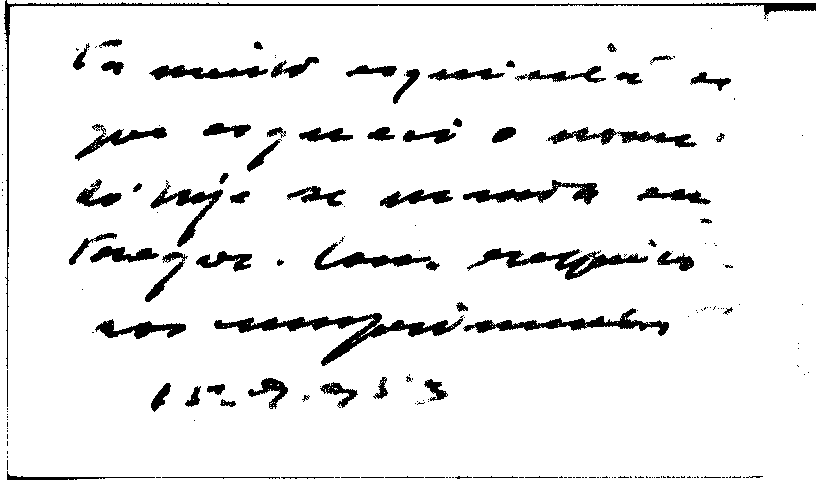 ta muito esquisita e
que esqueci o nome.
Só hoje se manda en
tregar. Com respeito
sos cumprimentos
15-9-953